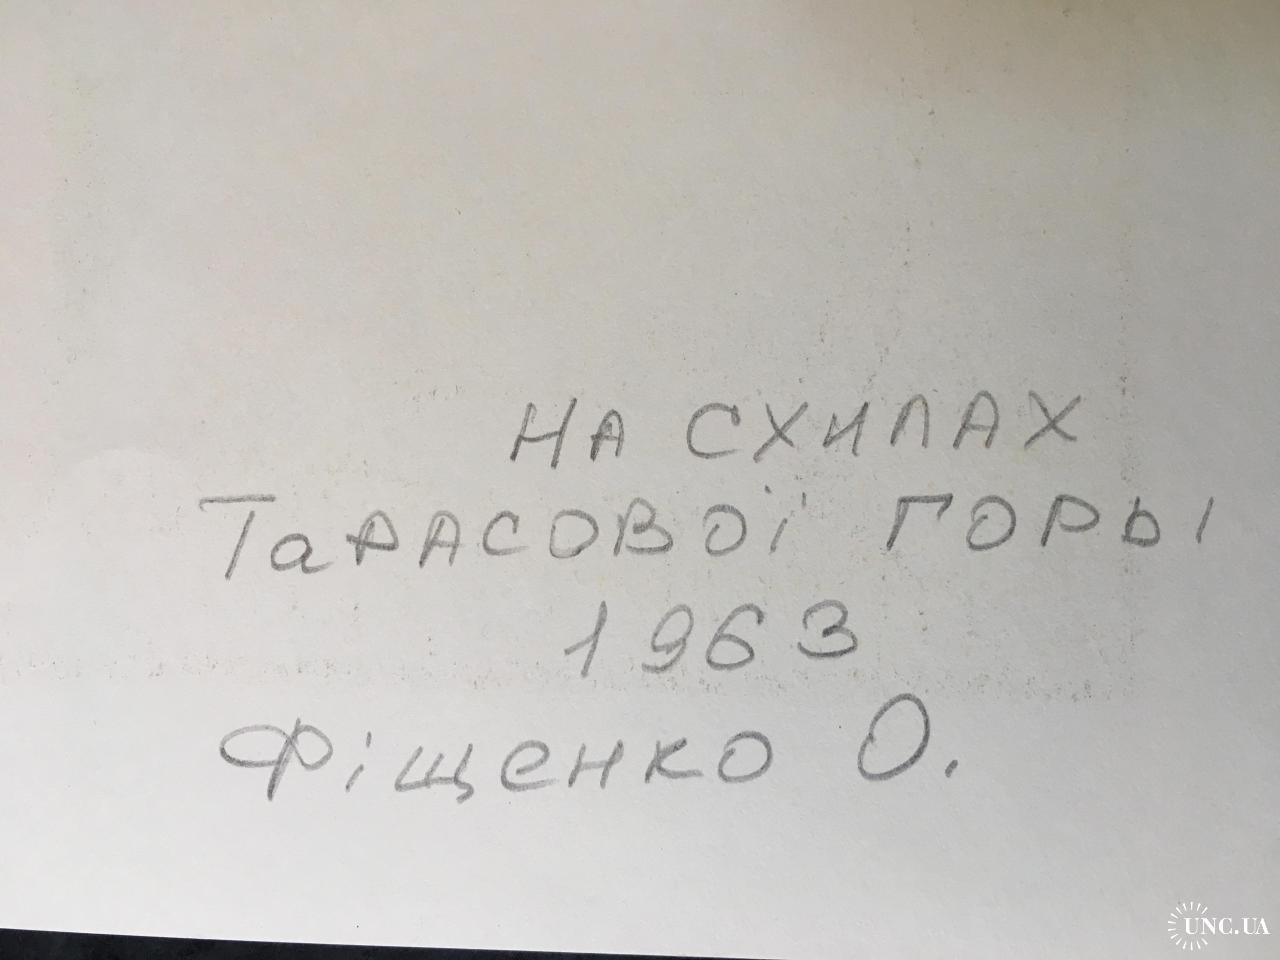 НА СХИЛАХ
ТаРАСОВОЇ ГОРЫ
1963
Фіщенко О.
UNC.UA